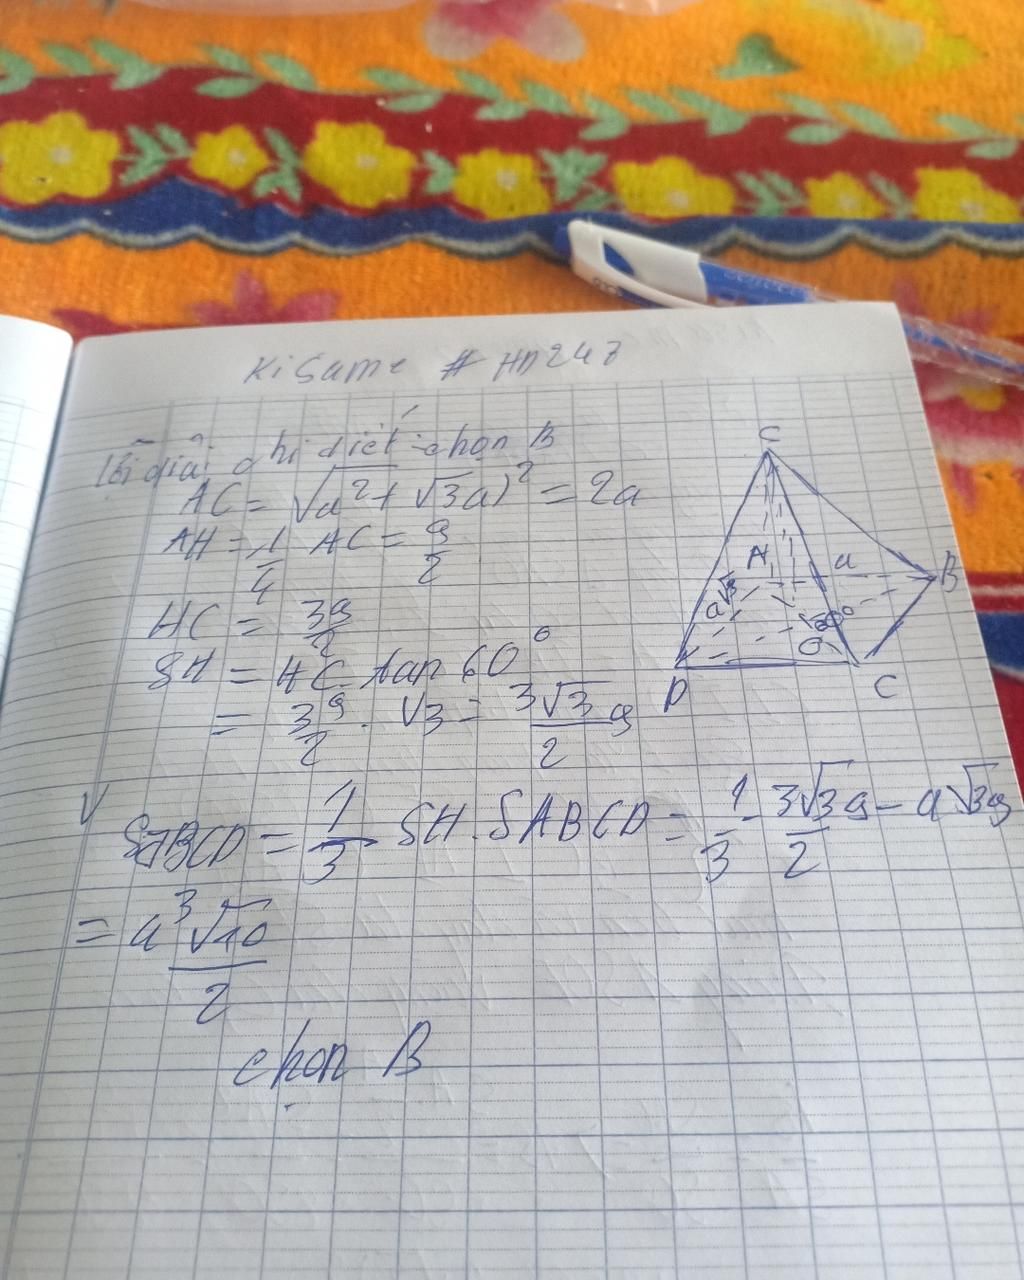 Kisame # HN247
lời giải chi tiết chọn B
AC = √a² + √3a)² = 2a
AH = 1/4 AC = a/2
HC = 3a/2
SH = HC. tan 60°
= 3a/2 . √3 = 3√3a/2
V SABCD = 1/3 SH.SABCD = 1/3 - 3√3a/2 - a√3a
= a³√10/2
chọn B
A
a
B
a√3
60°
D
C